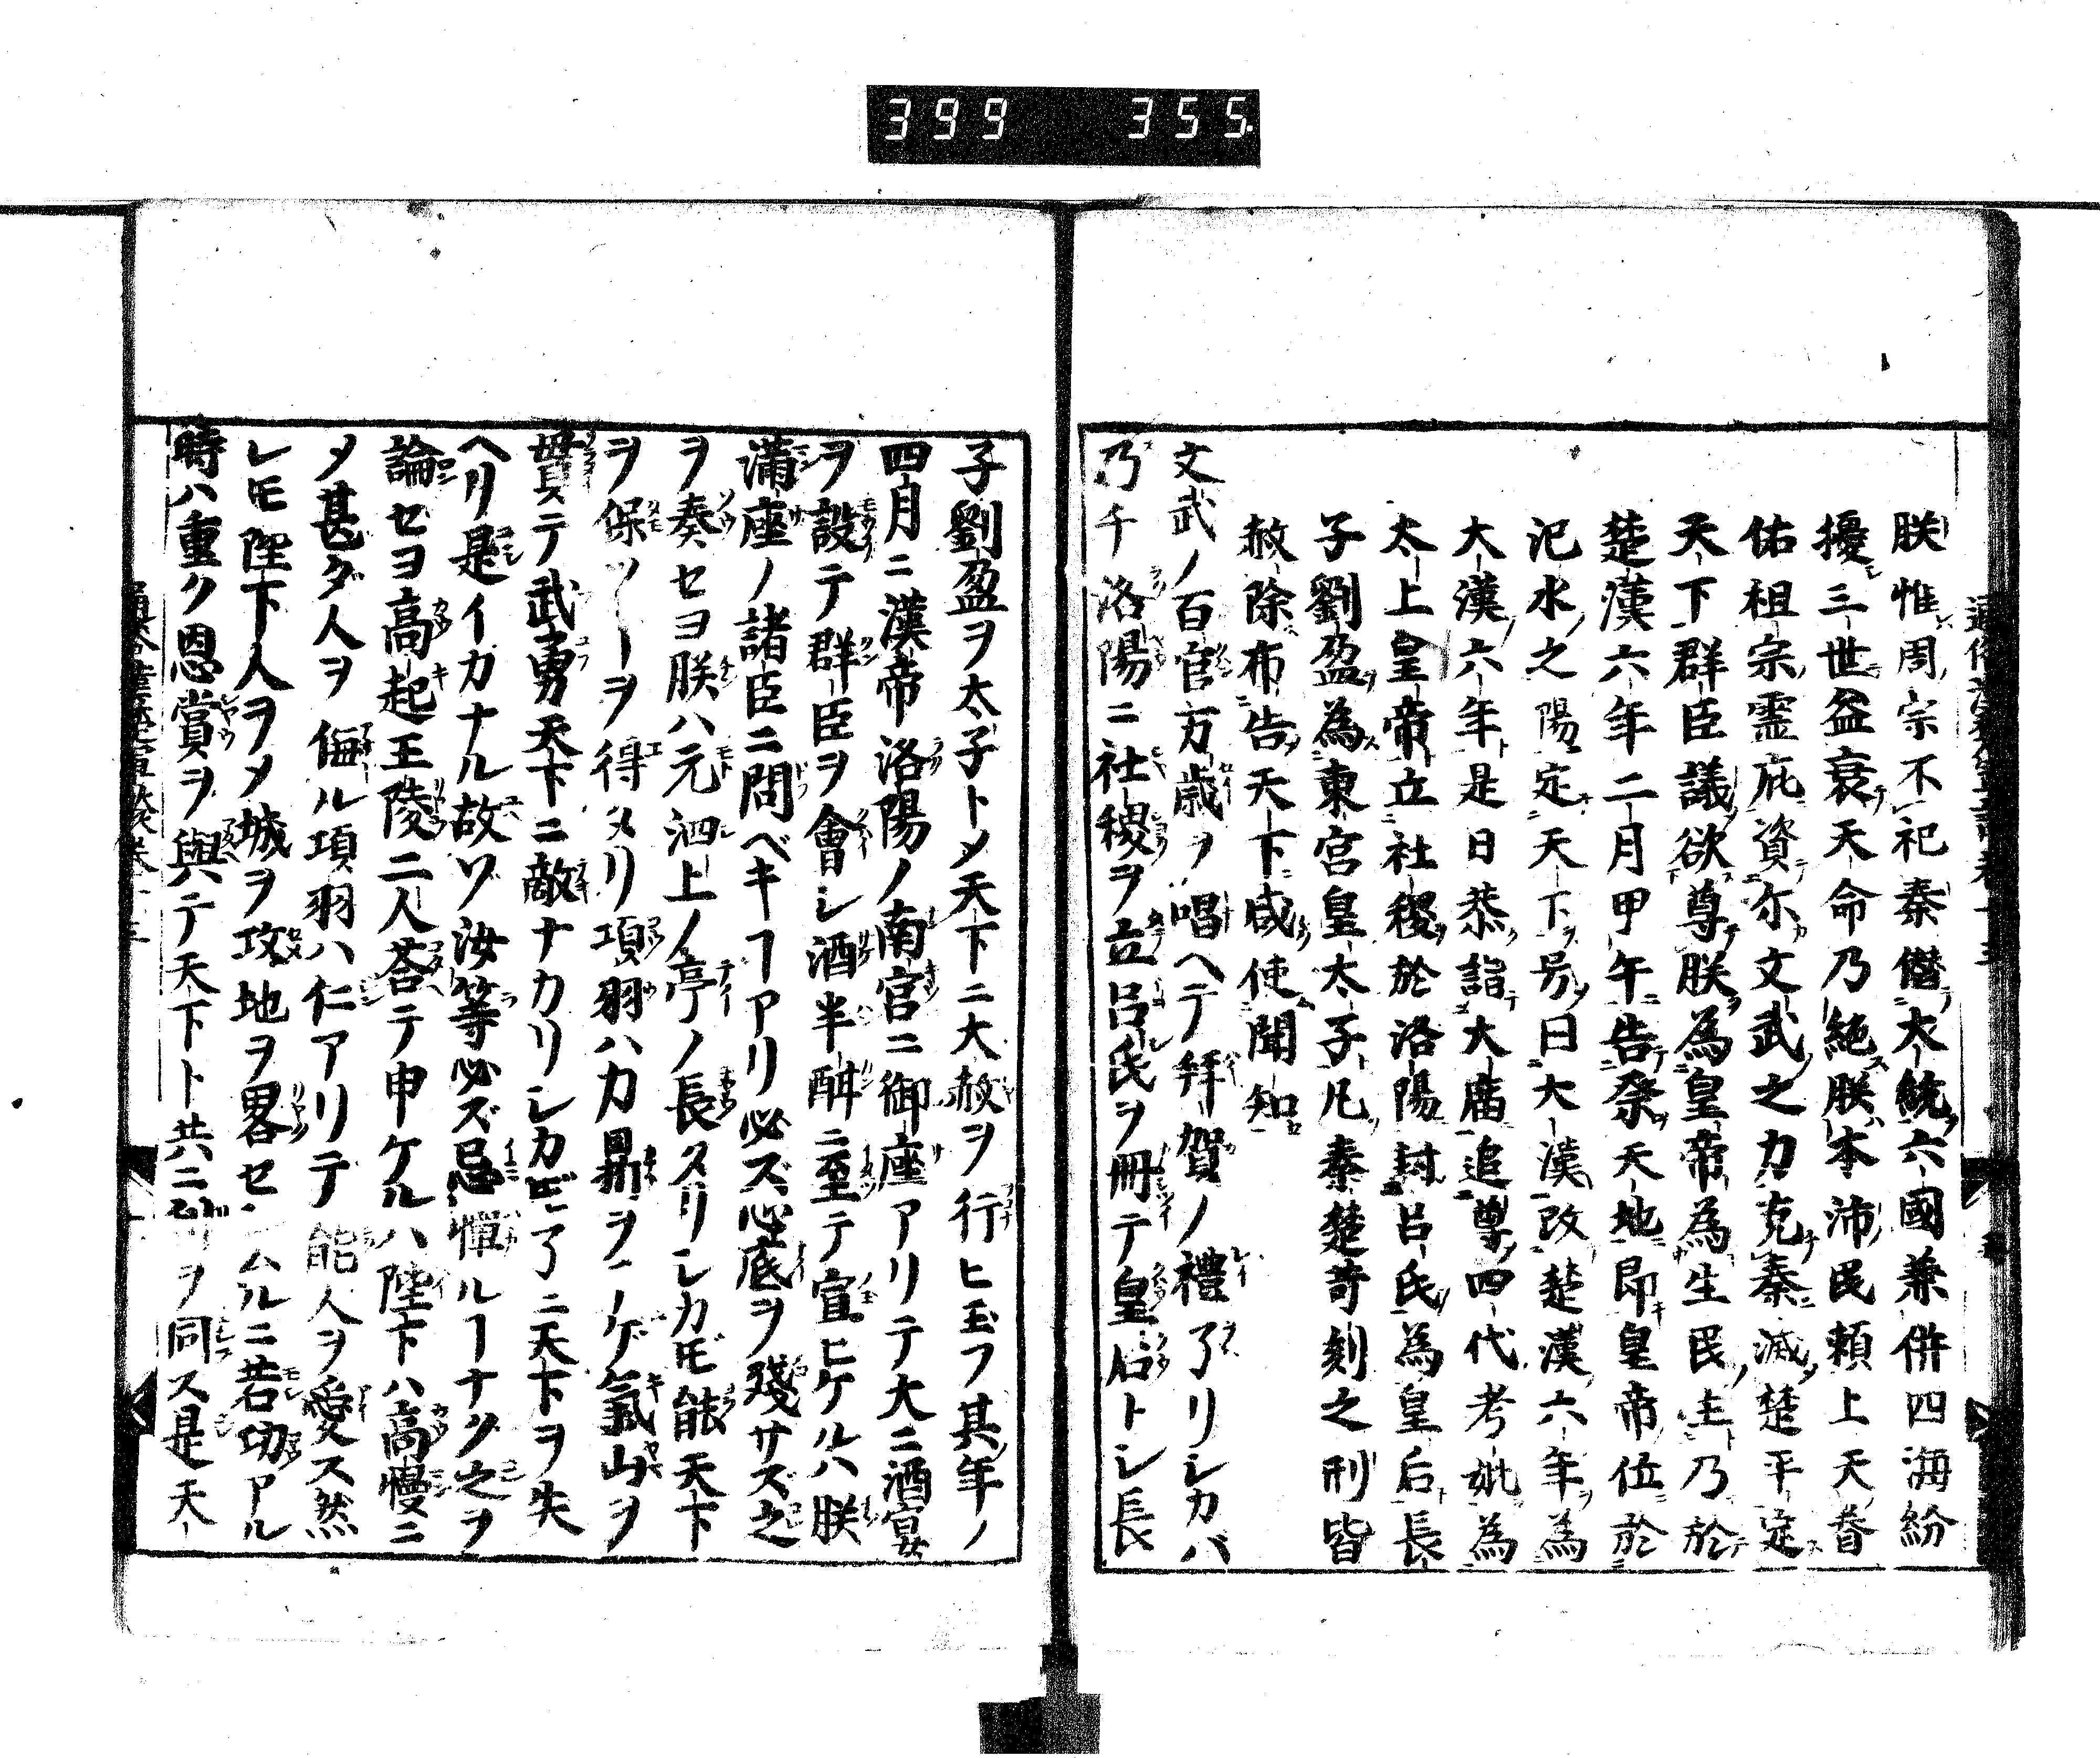 399 355.
朕惟周宗不祀秦僭大統六國兼併四海紛
擾三世益衰天命乃絶朕本沛民頼上天眷
佑祖宗霊庇資尓文武之力克秦滅楚平定
天下群臣議欲尊朕為皇帝為生民主乃於
楚漢六年二月甲午告祭天地即皇帝位於
汜水之陽定天下号曰大漢改楚漢六年為
大漢六年是日恭詣大庿追尊四代考妣為
太上皇帝立社稷於洛陽封呂氏為皇后長
子劉盈為東宮皇太子凡秦楚苛刻之刑皆
赦除布告天下咸使聞知
文武ノ百官万歳ヲ唱ヘテ拜賀ノ禮了リシカバ
乃チ洛陽ニ社稷ヲ立呂氏ヲ冊テ皇后トシ長
子劉盈ヲ太子トメ天下ニ大赦ヲ行ヒ玉フ其年ノ
四月ニ漢帝洛陽ノ南宮ニ御座アリテ大ニ酒宴
ヲ設テ群臣ヲ會シ酒半酣ニ至テ宣ヒケルハ朕
滿座ノ諸臣ニ問ベキヿアリ必ズ心底ヲ殘サズ之
ヲ奏セヨ朕ハ元泗上ノ亭ノ長タリシカ𪜈能天下
ヲ保ツヿヲ得タリ項羽ハ力鼎ヲアゲ氣山ヲ
貫テ武勇天下ニ敵ナカリシカ𪜈了ニ天下ヲ失
ヘリ是イカナル故ソ汝等必ズ忌憚ルヿナク之ヲ
論セヨ高起王陵二人荅テ申ケルハ陛下ハ高慢ニ
メ甚ダ人ヲ侮ル項羽ハ仁アリテ能人ヲ愛ス然
レ𪜈陛下人ヲメ城ヲ攻地ヲ畧セシムルニ若功アル
時ハ重ク恩賞ヲ與テ天下ト共ニ利ヲ同ス是天